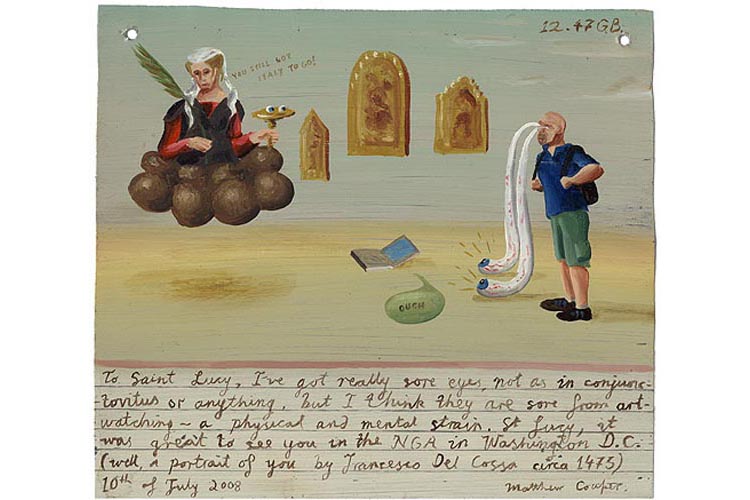 12.47 GB.
YOU STILL GOT
ITALY TO GO!
OUCH
To Saint Lucy, I've got really sore eyes, not as in conjunc-
tovitus or anything, but I think they are sore from art-
watching - a physical and mental strain. St Lucy, it
was great to see you in the NGA in Washington D.C.
(well, a portrait of you by Francesco Del Cossa circa 1475)
10th of July 2008
Matthew Couper.